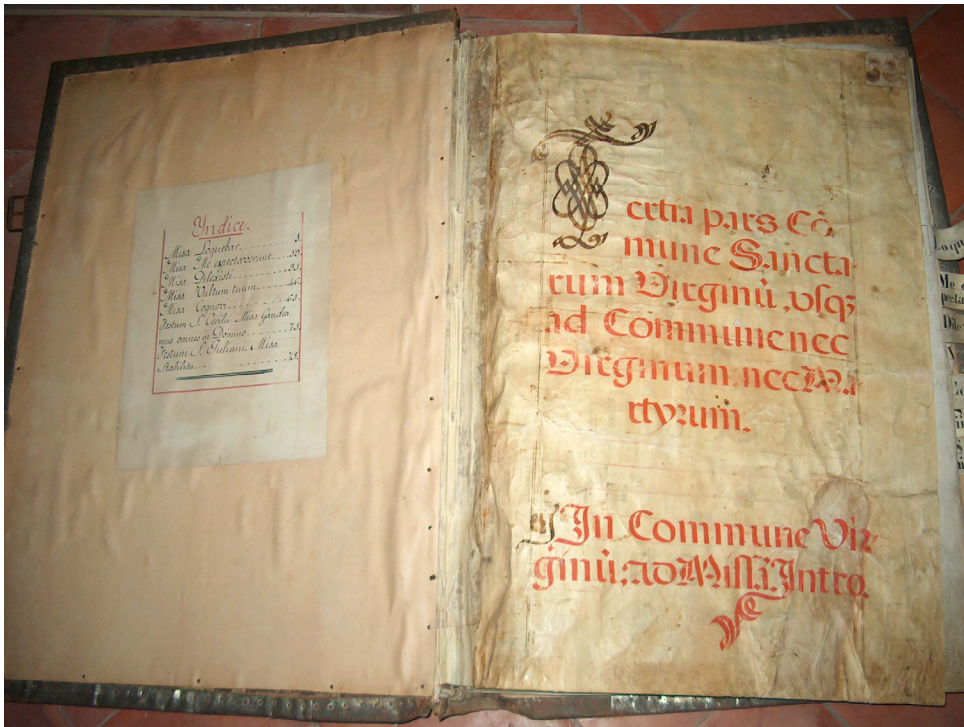 Yndice.
Misa Loquebar 1.
Misa Me expectaverunt
Misa Dilexisti
Misa Vultum tuum
Misa Cognovi
Festum S. Cecilie Misa Gaudea
mus omnes in Domino
Festum S. Juliani. Misa
Statuit 75.
Tertia pars Cō
mune Sancta
rum Virginū, vsq3
ad Commune nec
Virginum, nec Ma
rtyrum.
In Commune Vir
ginū, ad Missā. Intro.